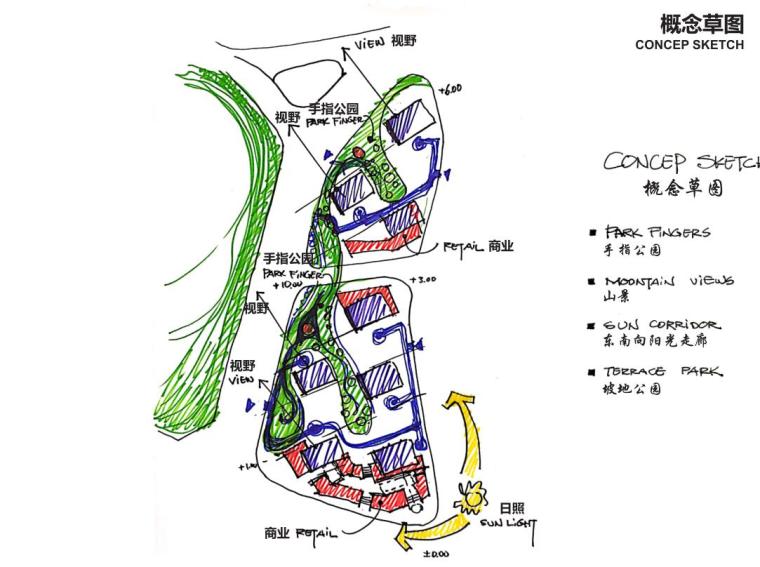 概念草图
CONCEP SKETCH
VIEW 视野
+6.00
手指公园
PARK FINGER
视野
CONCEP SKETCH
概念草图
PARK FINGERS
手指公园
RETAIL 商业
手指公园
PARK FINGER
+10.00
+3.00
MOUNTAIN VIEWS
山景
视野
SUN CORRIDOR
东南向阳光走廊
视野
VIEW
TERRACE PARK
坡地公园
日照
SUN LIGHT
商业 RETAIL
±0.00